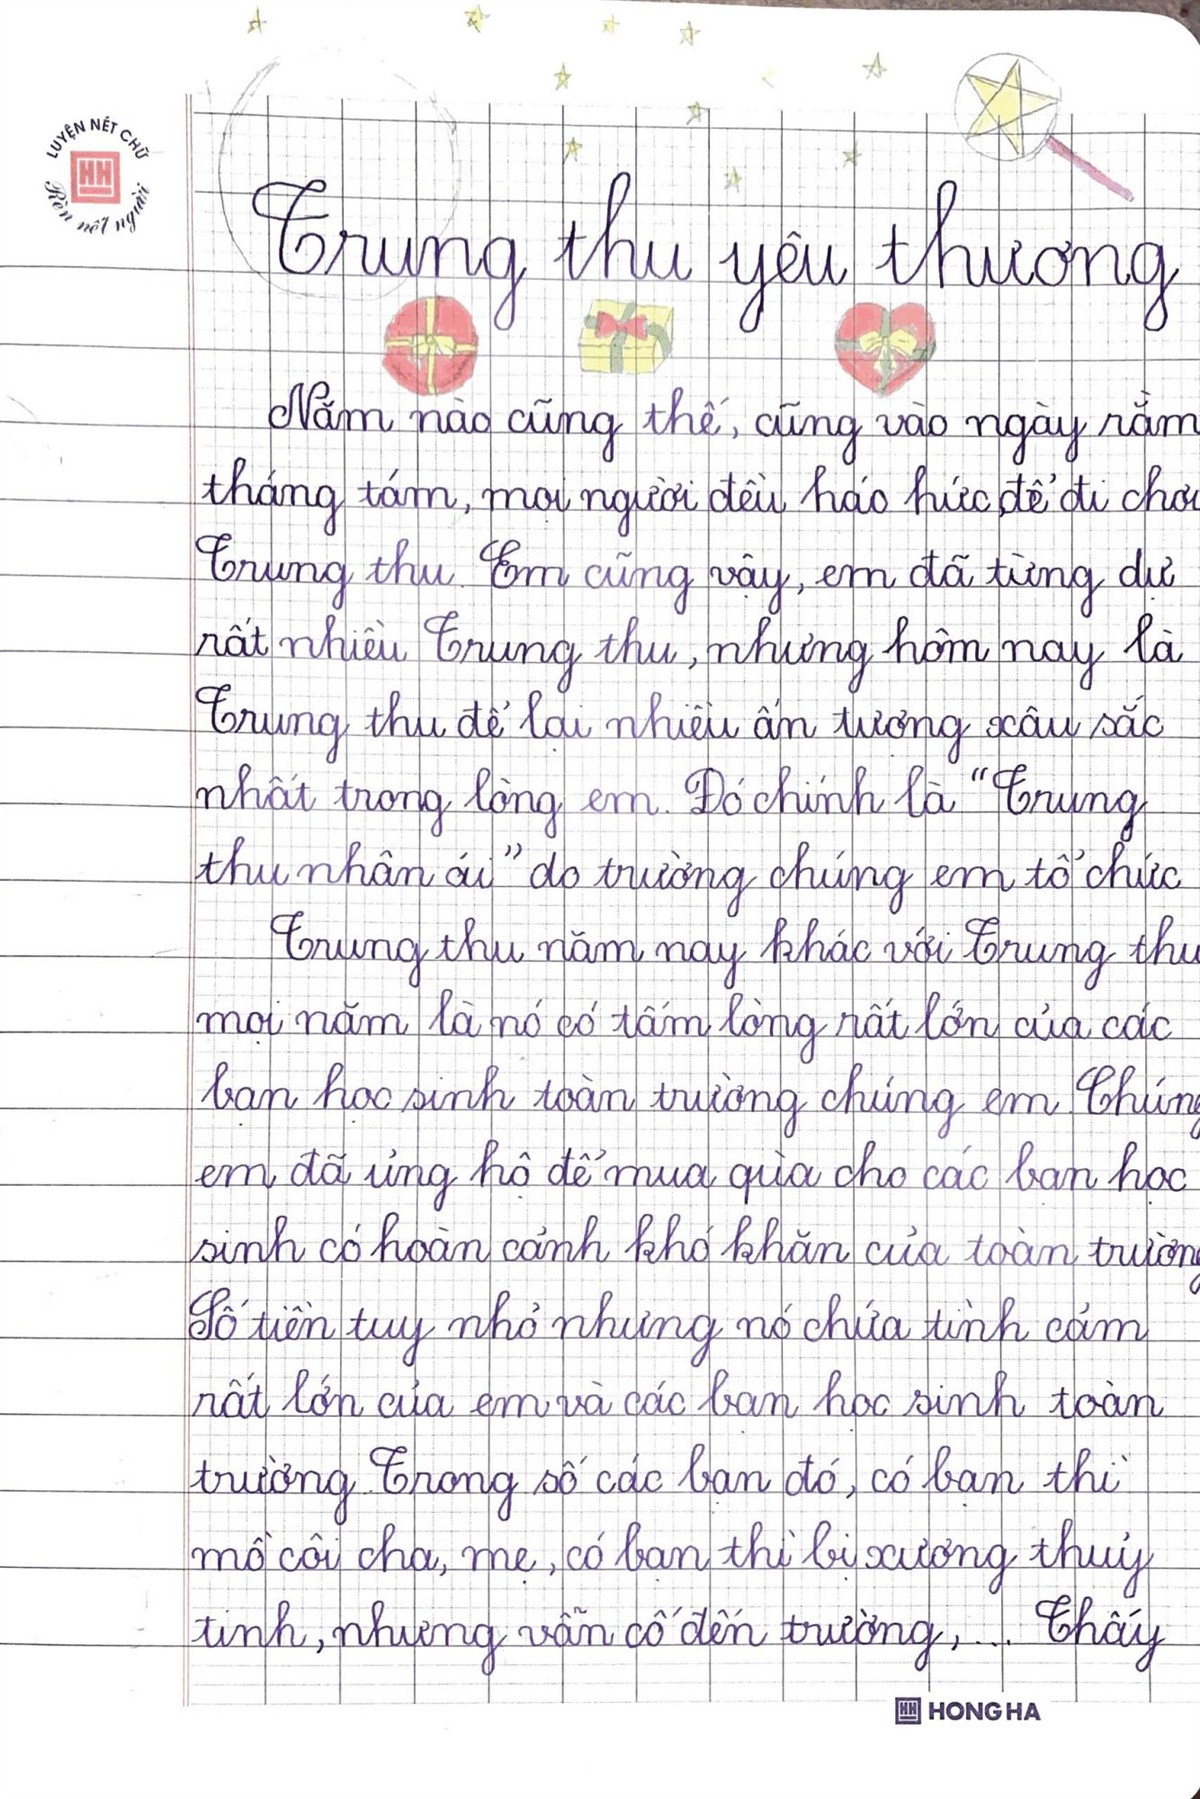 LUYỆN NÉT CHỮ
HH
Rèn nết người
Trung thu yêu thương
Năm nào cũng thế, cũng vào ngày rằm
tháng tám, mọi người đều háo hức để đi chơi
Trung thu. Em cũng vậy, em đã từng dự
rất nhiều Trung thu, nhưng hôm nay là
Trung thu để lại nhiều ấn tượng xâu sắc
nhất trong lòng em. Đó chính là "Trung
thu nhân ái" do trường chúng em tổ chức
Trung thu năm nay khác với Trung thu
mọi năm là nó có tấm lòng rất lớn của các
bạn học sinh toàn trường chúng em. Chúng
em đã ủng hộ để mua quà cho các bạn học
sinh có hoàn cảnh khó khăn của toàn trường
Số tiền tuy nhỏ nhưng nó chứa tình cảm
rất lớn của em và các bạn học sinh toàn
trường. Trong số các bạn đó, có bạn thì
mồ côi cha, mẹ, có bạn thì bị xương thuỷ
tinh, nhưng vẫn cố đến trường,... Thấy
HH HONG HA